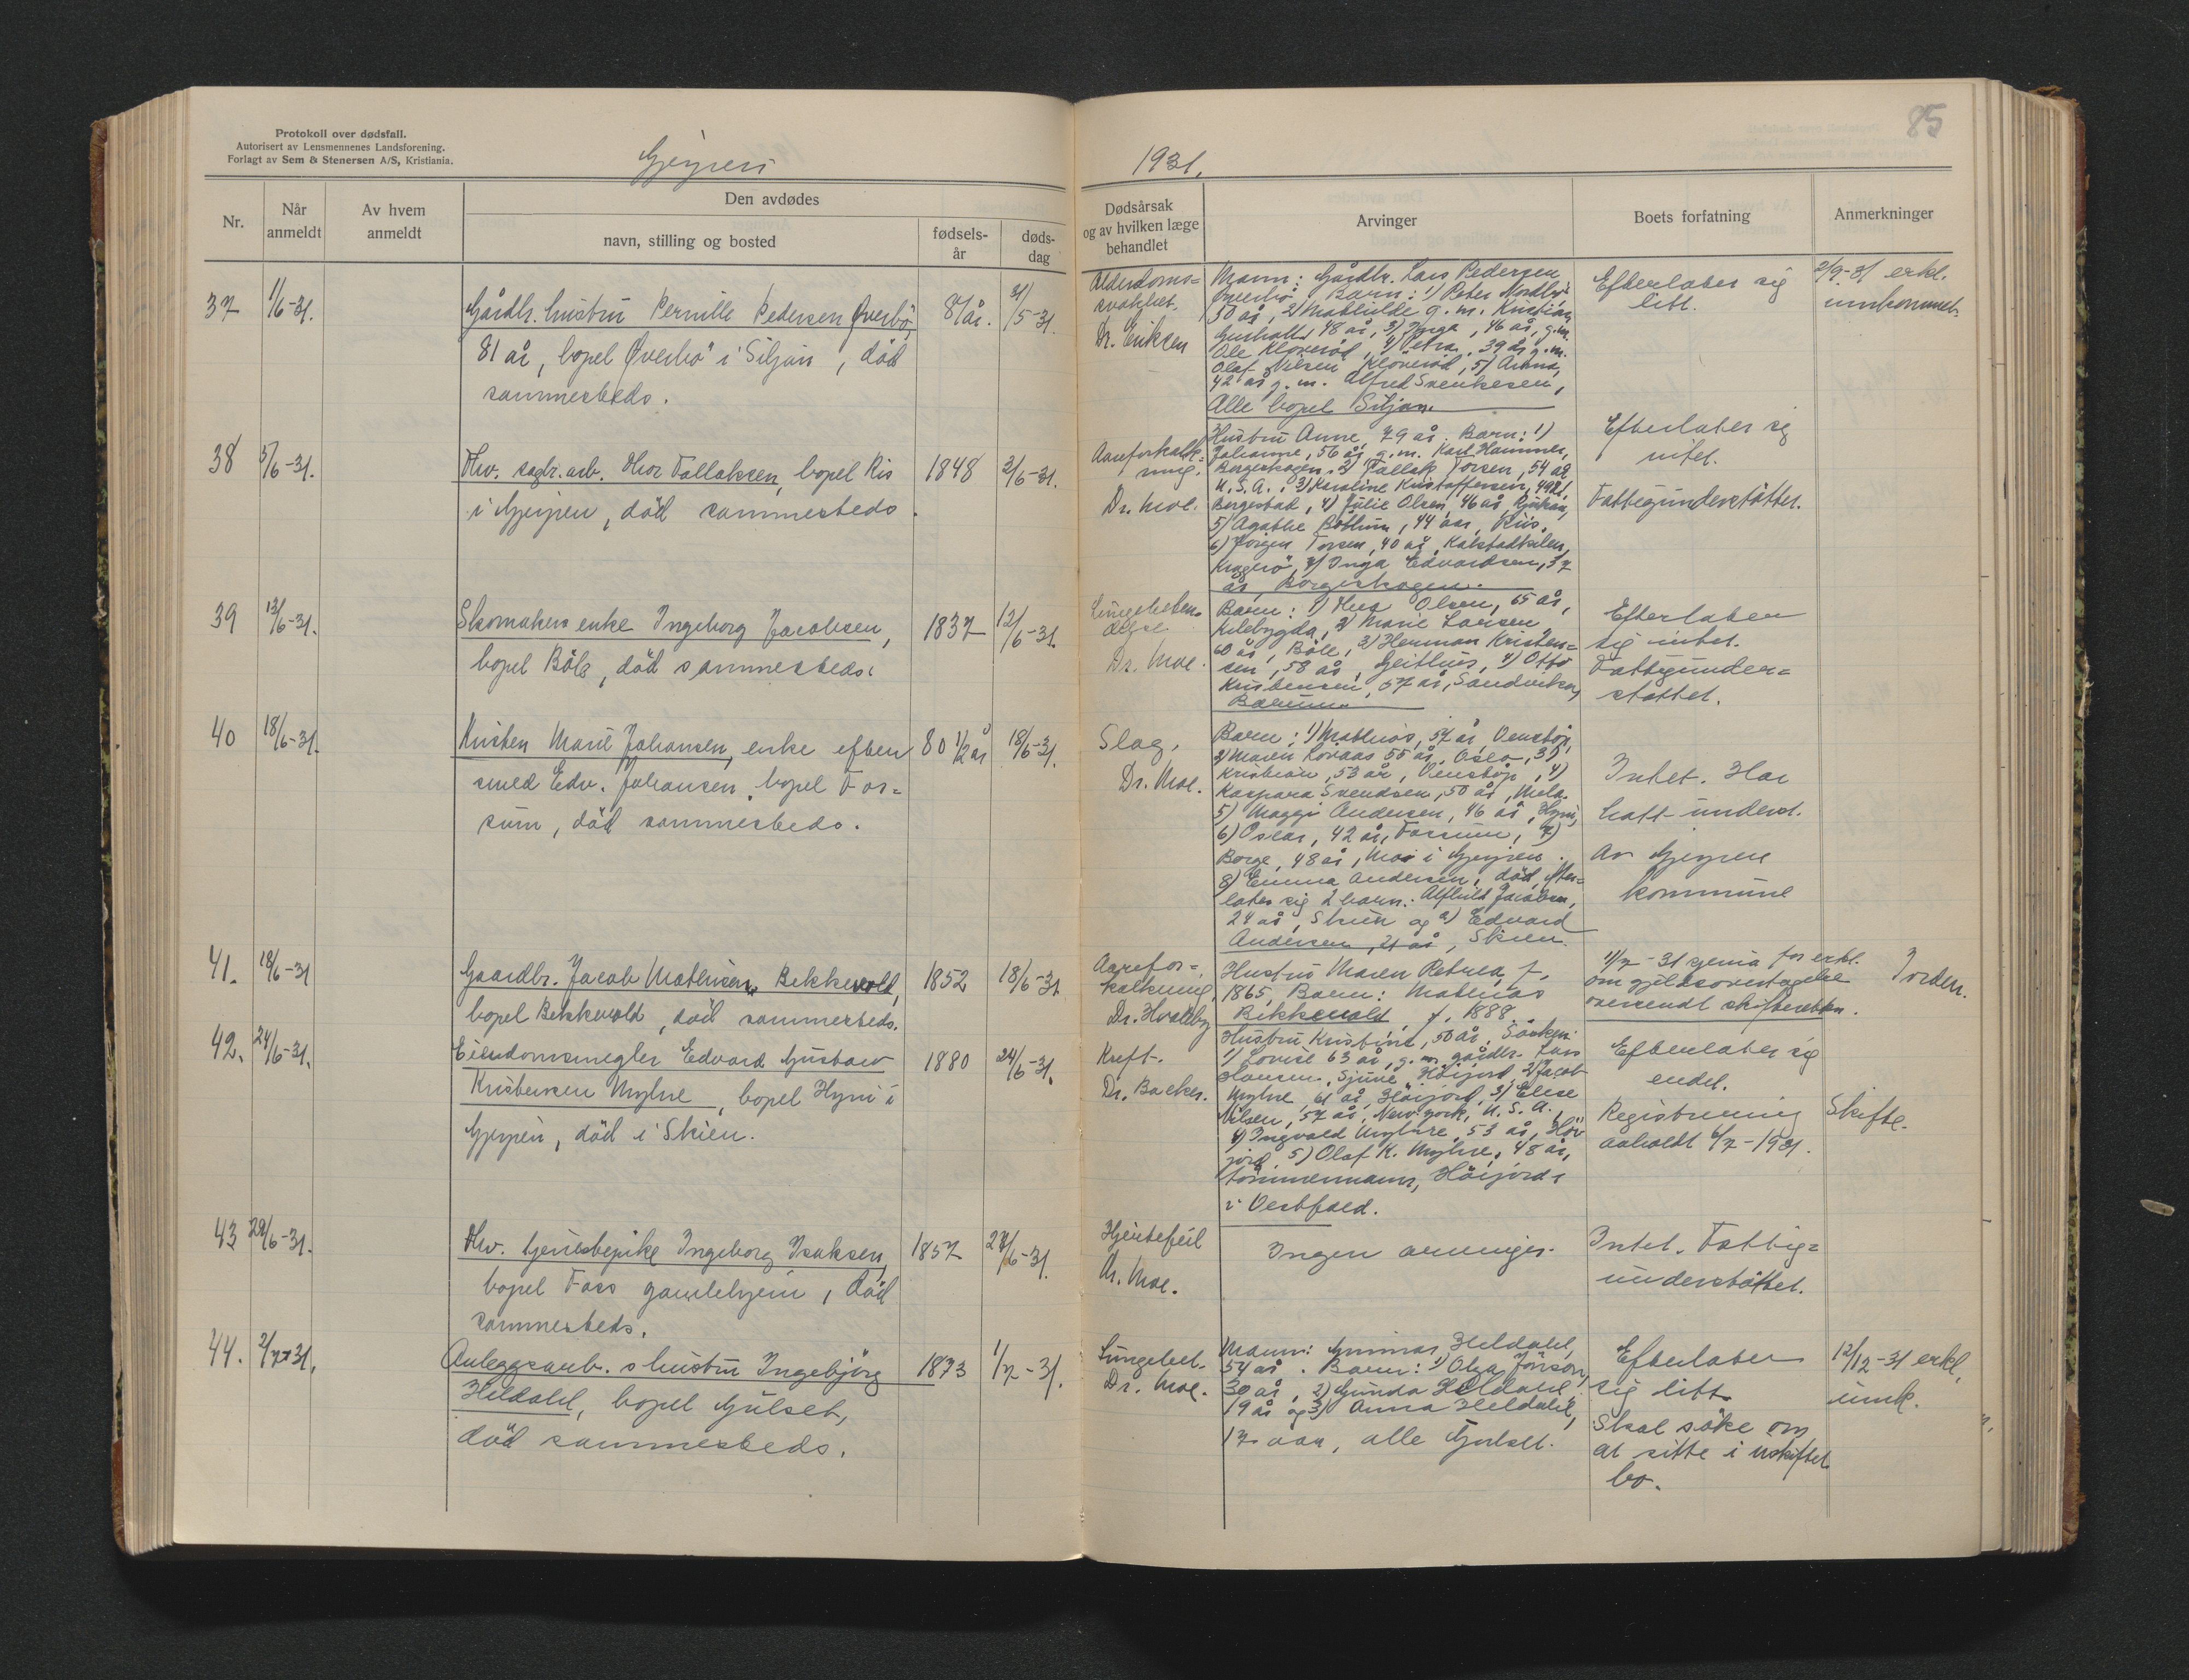 Protokoll over dødsfall.
Autorisert av Lensmennenes Landsforening.
Forlagt av Sem & Stenersen A/S, Kristiania.
Gjerpen
1931.
85
Nr.
Når anmeldt
Av hvem anmeldt
Den avdødes
navn, stilling og bosted
fødsels-år
døds-dag
Dødsårsak og av hvilken læge behandlet
Arvinger
Boets forfatning
Anmerkninger
37
1/6-31.
Gårdbr. hustru Pernille Pedersen Øverbö,
81 år, bopel Øverbö i Siljan, död
sammesteds.
81 år.
31/5-31.
Alderdoms=
svakhet.
Dr. Eriksen
Mann: Gårdbr. Lars Pedersen
Øverbö. Barn: 1) Peter Nordbö
50 år, 2) Mathilde g.m. Kristian
48 år, 3) Inga, 46 år, g.m.
Ole Kloveröd, 4) Petra, 39 år g.m.
Olaf Nilsen Kloveröd, 5) Anna,
42 år g.m. Alfred Svenkesen,
Alle bopel Siljan.
Efterlater sig
litt.
2/9-31 erkl.
innkommet.
38
5/6-31.
Fhv. sagbr.arb. Thor Tallaksen, bopel Ris
i Gjerpen, död sammesteds.
1848
3/6-31.
Aareforkalk=
ning.
Dr. Moe.
Hustru Anne, 79 år. Barn: 1)
Johanne, 56 år, g.m. Karl Hammer,
Borgeskogen, 2) Tallak Torsen, 54 år
U.S.A., 3) Karoline Kristoffersen, 49 år,
Borgestad, 4) Julie Olsen, 46 år, Rjukan,
5) Agathe Böhlum, 44 aar, Riis,
6) Jörgen Torsen, 40 år, Kalstadkilen,
Kragerö, 7) Inga Edvardsen, 37
år, Borgeskogen.
Efterlater sig
intet.
Fattigunderstöttet.
39
13/6-31.
Skomakers enke Ingeborg Jacobsen,
bopel Böle, död sammesteds.
1837
12/6-31.
Lungebeten=
delse.
Dr. Moe.
Barn: 1) Olsen, 65 år,
Kilebygda, 2) Marie Larsen
60 år, Böle, 3) Herman Kristen=
sen, 58 år, Geithus, 4) Otto
Kristensen, 57 år, Sandviken,
Bærum.
Efterlater
sig intet.
Fattigunder=
stöttet.
40
18/6-31.
Kirsten Marie Johansen, enke efter
smed Edv. Johansen, bopel Fos=
sum, död sammesteds.
80 1/2 år
18/6-31.
Slag.
Dr. Moe.
Barn: 1) Mathias, 57 år, Venstöp,
2) Maren Lövaas 55 år, Oslo, 3)
Kristian, 53 år, Venstöp, 4)
Kaspara Svendsen, 50 år, Mela.
5) Maggi Andersen, 46 år, Hyni,
6) Oskar, 42 år, Fossum, 7)
Borge, 48 år, Moe i Gjerpen.
8) Emma Andersen, död, efter=
later sig 2 barn: Alfhild Jacobsen,
24 år, Skien og 2) Edvard
Andersen, 21 år, Skien.
Intet. Har
hatt underst.
Av Gjerpen
kommune
41.
18/6-31
Gaardbr. Jacob Mathisen Bekkevold,
bopel Bekkevold, död sammesteds.
1852
18/6-31.
Aarefor=
kalkning.
Dr. Hvalby
Hustru Maren Petrea, f.
1865, Barn: Mathias
Bekkevold, f. 1888.
1/7-31 gjenp. for erkl.
om gjeldsovertagelse
oversendt skifteretten.
Iorden.
42.
24/6-31.
Eiendomsmegler Edvard Gustav
Kristensen Myhre, bopel Hyni i
Gjerpen, död i Skien.
1880
24/6-31.
Kreft.
Dr. Backer.
Hustru Kristine, 50 år, Söskeni:
1) Lovise 63 år, g.m. gårdbr. Lars
Hansen, Sjuve, Höijord 2) Jacob
Myhre, 61 år, Höijord, 3) Elise
Nilsen, 57 år, New York, U.S.A.,
4) Ingvald Myhre, 53 år, Höi
jord, 5) Olaf K. Myhre, 48 år,
tömmermann, Höijord
i Vestfold.
Efterlater sig
endel.
Registrering
avholdt 4/7-1931.
Skifte.
43
29/6-31.
Fhv. tjenestepike Ingeborg Isaksen,
bopel Foss gamlehjem, död
sammesteds.
1857
28/6-31.
Hjertefeil
Dr. Moe.
Ingen arvinger.
Intet. Fattig=
understöttet.
44.
2/7-31.
Anleggsarb.s hustru Ingebjörg
Heldahl, bopel Gulset,
död sammesteds.
1873
1/7-31.
Lungebet.
Dr. Moe.
Mann: Gunnar Heldahl,
54 år. Barn: 1) Olga Jörson,
30 år, 2) Gunda Heldahl,
19 år og 3) Anna Heldahl,
17 aar, alle Gulset.
Efterlater
sig litt.
Skal söke om
at sitte i uskiftet
bo.
12/12-31 erkl.
innk.